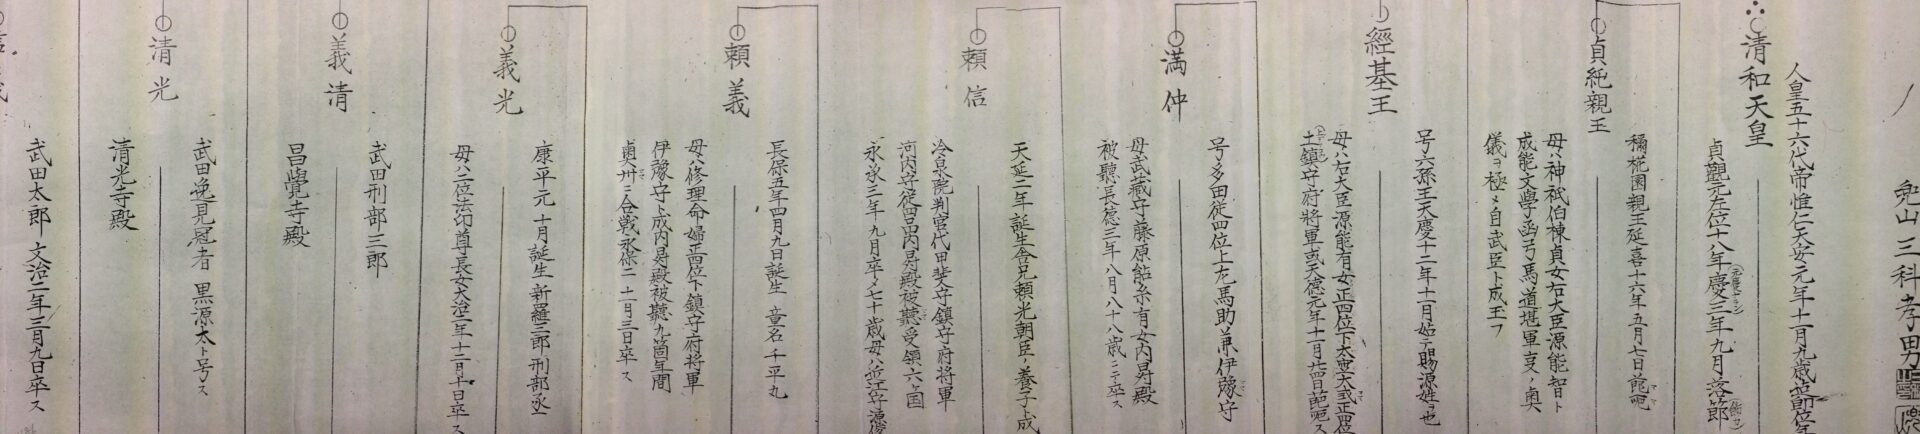 兜山三科孝男
清和天皇
人皇五十六代帝惟仁天安元年十一月九歳節位
貞觀元在位十八年慶三年九月落
貞純親王
桃園親王延喜十六年五月七日
母ハ神祇伯棟貞女右大臣源能智ト
成能文學函弓馬道堪軍
儀ヲ極メ自武臣ト成玉フ
經基王
号六孫王天慶十二年十一月始テ賜源姓ヲ也
母ハ右大臣源能有女正四位下太宰大弐正四位
土鎮守府將軍或天德元年十一月廿四日
満仲
号多田従四位上左馬助兼伊豫守
母武藏守藤原能有女内昇殿
被聽長德三年八月八十八歳ニテ卒ス
頼信
天延二年誕生舎兄頼光朝臣ノ養子ト成
冷泉院判官代甲斐守鎮守府将軍
河内守従四内昇殿被聽受領六ヶ国
永承三年九月卒〆七十歳母ハ近江守
頼義
長保五年四月九日誕生童名千平丸
母ハ修理命婦正四位下鎮守府将軍
伊豫守ト成内昇殿被聽九箇年間
奥州ニ合戦永保二十一月三日卒ス
義光
康平元十月誕生新羅三郎刑部丞
母ハ二位法印尊長女大治二年十二月十日卒ス
義清
武田刑部三郎
昌覺寺殿
清光
武田逸見冠者黒源太ト号ス
清光寺殿
武田太郎文治二年三月九日卒ス